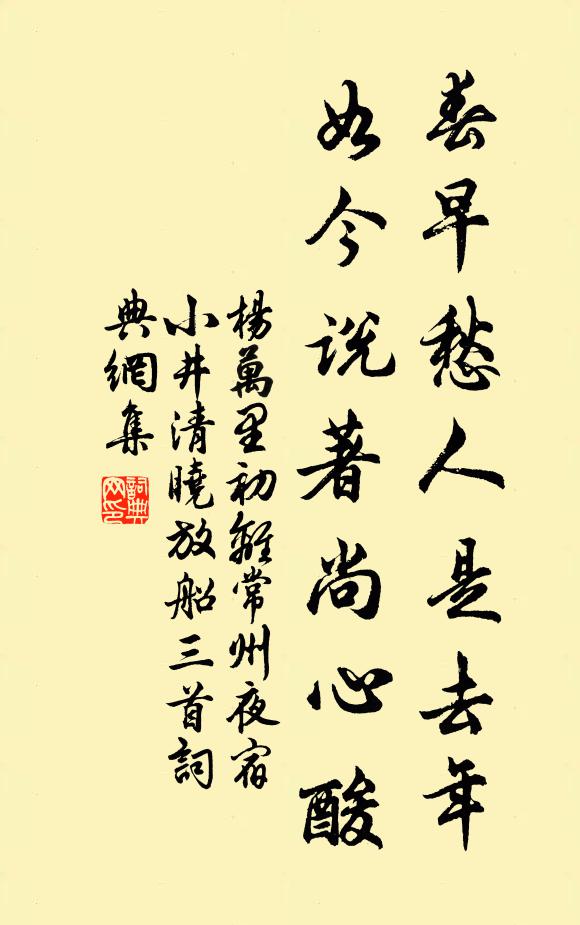 春早愁人是去年
如今説著尚心酸
楊萬里初離常州夜宿
小井清曉放船三首詞
典網集
詞典网印